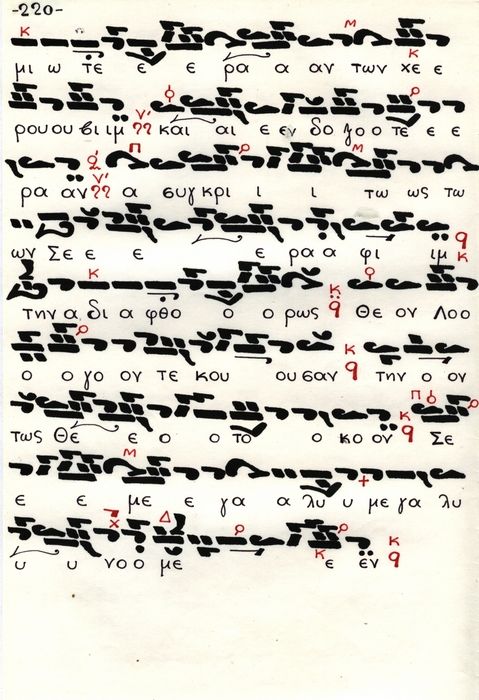 -220-
μι ω τε ε ε ρα α αν των χε ε
ρου ου βι ιμ και αι ε εν δο ξο ο τε ε ε
ρα αν α συγ κρι ι ι τω ως τω
ων Σε ε ε ε ρα α φι ιμ
την α δι α φθο ο ο ρως Θε ον Λο ο
ο ο γο ον τε κου ου σαν την ο ον
τως Θε ε ο ο το ο κο ον Σε
ε ε με ε γα α λυ υ με γα λυ
υ υ νο ο με ε εν